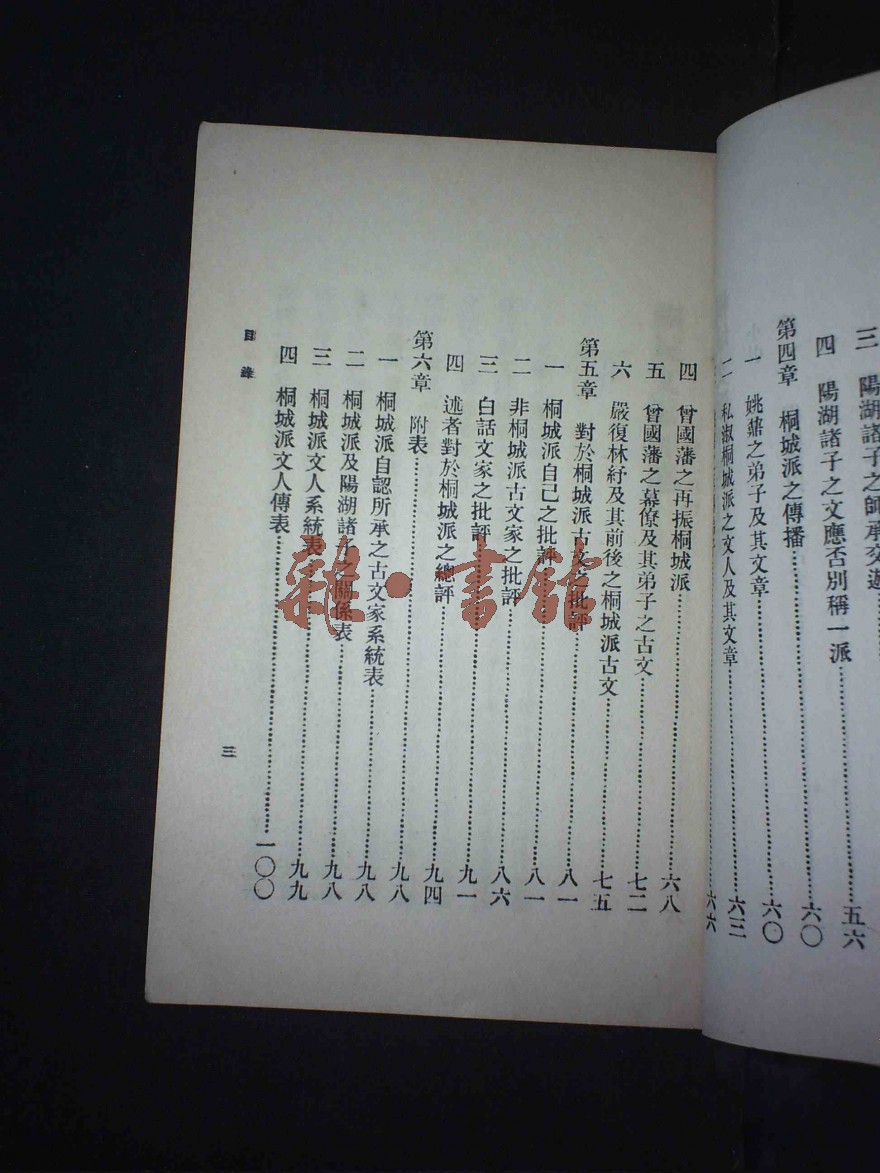 三　陽湖諸子之師承交遊
四　陽湖諸子之文應否別稱一派……五六
第四章　桐城派之傳播……六〇
一　姚鼐之弟子及其文章……六〇
二　私淑桐城派之文人及其文章……六三
……六六
四　曾國藩之再振桐城派……六八
五　曾國藩之幕僚及其弟子之古文……七二
六　嚴復林紓及其前後之桐城派古文……七五
第五章　對於桐城派古文之批評……八一
一　桐城派自己之批評……八一
二　非桐城派古文家之批評……八六
三　白話文家之批評……九一
四　述者對於桐城派之總評……九四
第六章　附表……九八
一　桐城派自認所承之古文家系統表……九八
二　桐城派及陽湖諸子之關係表……九八
三　桐城派文人系統表……九九
四　桐城派文人傳表……一〇〇
目錄
三
雜·書館